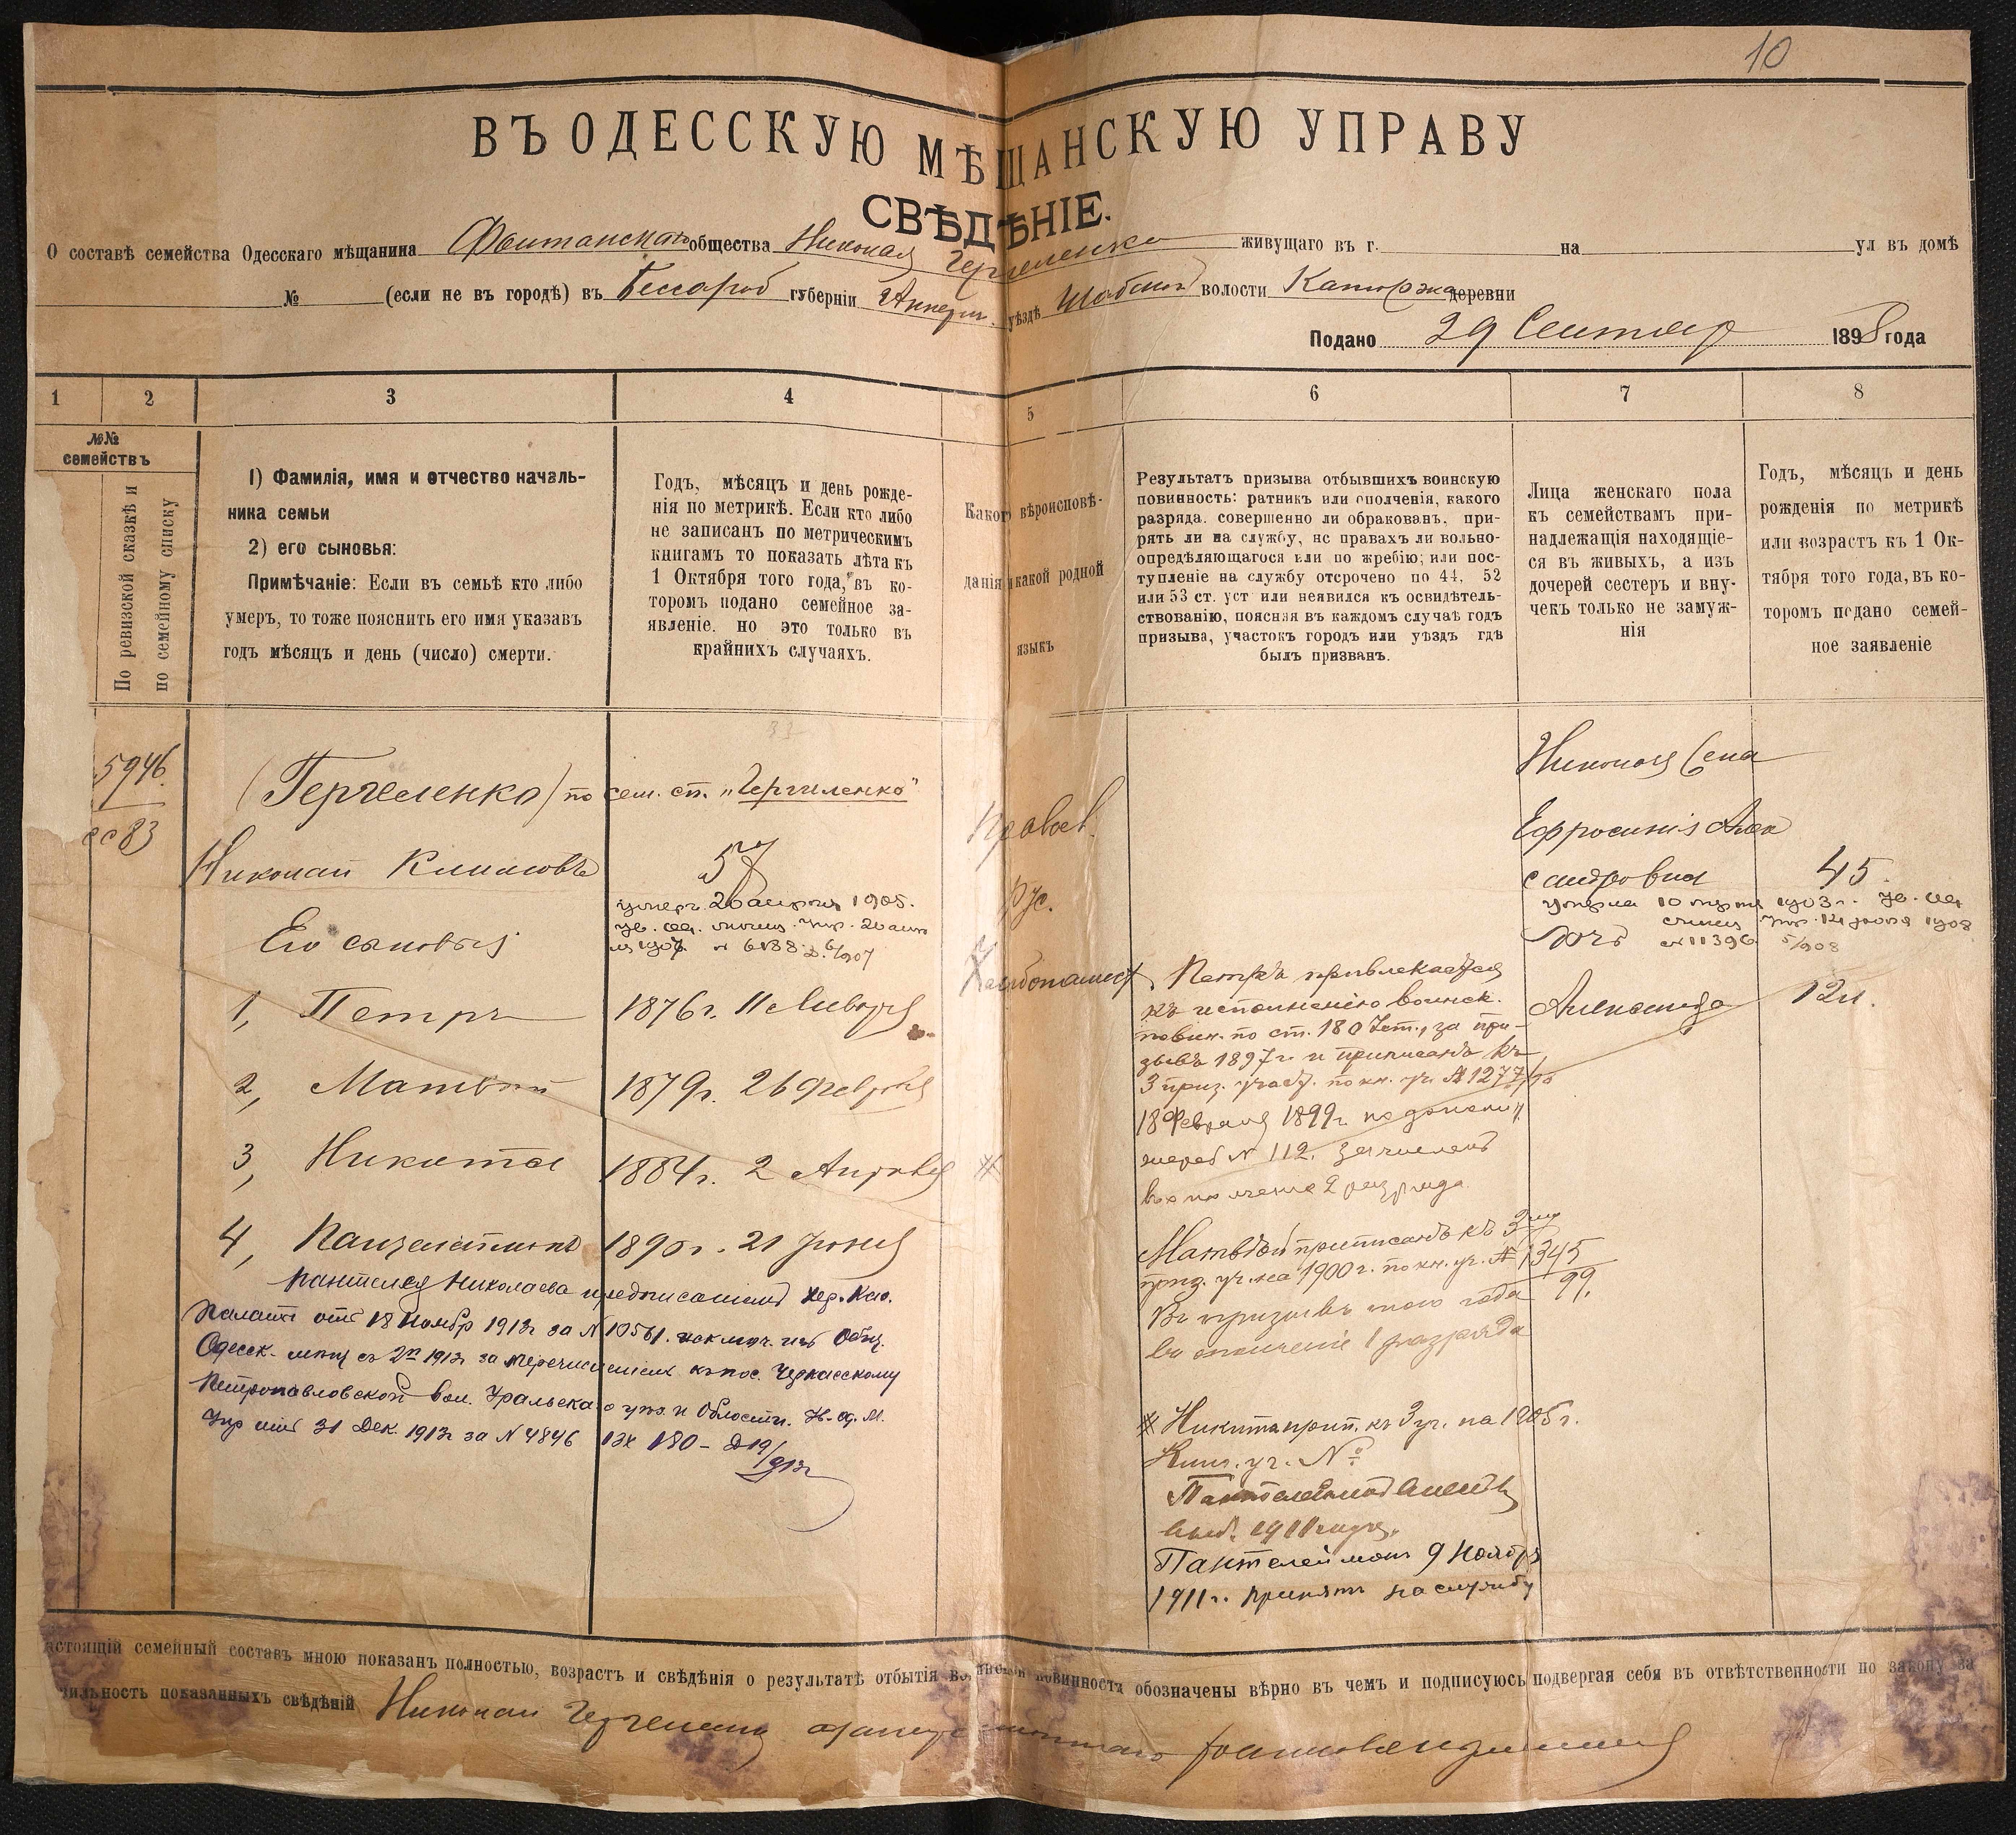 10
ВЪ ОДЕССКУЮ МѢЩАНСКУЮ УПРАВУ
СВѢДѢНІЕ.
О составѣ семейства Одесскаго мѣщанина Фонтанскаго общества Николая Герчеленко живущаго въ г. на ул въ домѣ
№ (если не въ городѣ) въ Бессараб губерніи Аккерм. уѣздѣ Шабской волости Каторжа деревни
Подано 29 Сентяб 1898 года
1 2 3 4 5 6 7 8
№№
семействъ
По ревизской сказкѣ и
по семейному списку
1) Фамилія, имя и отчество началь-
ника семьи
2) его сыновья:
Примѣчаніе: Если въ семьѣ кто либо
умеръ, то тоже пояснить его имя указавъ
годъ мѣсяцъ и день (число) смерти.
Годъ, мѣсяцъ и день рожде-
нія по метрикѣ. Если кто либо
не записанъ по метрическимъ
книгамъ то показать лѣта къ
1 Октября того года, въ ко-
торомъ подано семейное за-
явленіе. но это только въ
крайнихъ случаяхъ.
Какого вѣроисповѣ-
данія и какой родной
языкъ
Результатъ призыва отбывшихъ воинскую
повинность: ратникъ или ополченія, какого
разряда. совершенно ли обракованъ, при-
рять ли на службу, нс правахъ ли вольно-
опредѣляющагося или по жребію; или пос-
тупленіе на службу отсрочено по 44, 52
или 53 ст. уст или неявился къ освидѣтель-
ствованію, поясняя въ каждомъ случаѣ годъ
призыва, участокъ городъ или уѣздъ гдѣ
былъ призванъ.
Лица женскаго пола
къ семействамъ при-
надлежащія находящіе-
ся въ живыхъ, а изъ
дочерей сестеръ и вну-
чекъ только не замуж-
нія
Годъ, мѣсяцъ и день
рожденія по метрикѣ
или возрастъ къ 1 Ок-
тября того года, въ ко-
торомъ подано семей-
ное заявленіе
5946
сс 83
(Герчеленко) по сем. сп. „Гергиленко"
Николай Климовъ 57
умеръ 20 апрѣля 1905.
1907 № 6138
Его сыновья
1, Петръ 1876 г. 11 Января
2, Матвѣй 1879 г. 26 Февраля
3, Никита 1884 г. 2 Апрѣля #
4, Пантелеймонъ 1890 г. 21 Іюня
Пантелея Николаева предписаніемъ Хер. Каз.
Палаты отъ 18 Ноябр 1913 г за № 10561. исключ. изъ Общ.
Одесск. мѣщ съ 2 п 1913 г за перечисленіемъ къ пос. Черкасскому
Петропавловской вол. Уральскаго уѣз. и Области. Ув. Од. М.
Упр отъ 31 Дек. 1913 г за № 4846
Правос.
Рус.
Хлѣбопашест
Петръ привлекается
къ исполненію воинск.
повин. по ст. 180 Уст., за при-
зывъ 1897 г. и приписанъ къ
3 приз. участ. по кн. уч. № 1277
18 Февраля 1899 г.
жереб № 112. зачисленъ
въ ополченіе 2 разряда
Матвѣй приписанъ къ 3 му
приз. уч. на 1900 г. по кн. уч. № 1345/99.
Въ призывъ того года
въ ополченіе 1 разряда
# Никита прип. къ 3 уч. на 1905 г.
Книг. уч. №
1911
Пантелеймонъ 9 Ноября
1911 г. принятъ на службу
Николая Жена
Ефросинія Алек
сандровна 45
умерла 1903 г.
1908
Дочь № 11396 5/908
Александра 12 л.
астоящій семейный составъ мною показанъ полностью, возрастъ и свѣдѣнія о результатѣ отбытія воинской повинности обозначены вѣрно въ чемъ и подписуюсь подвергая себя въ отвѣтственности по закону за
вильность показанныхъ свѣдѣній Николай Герчеленко